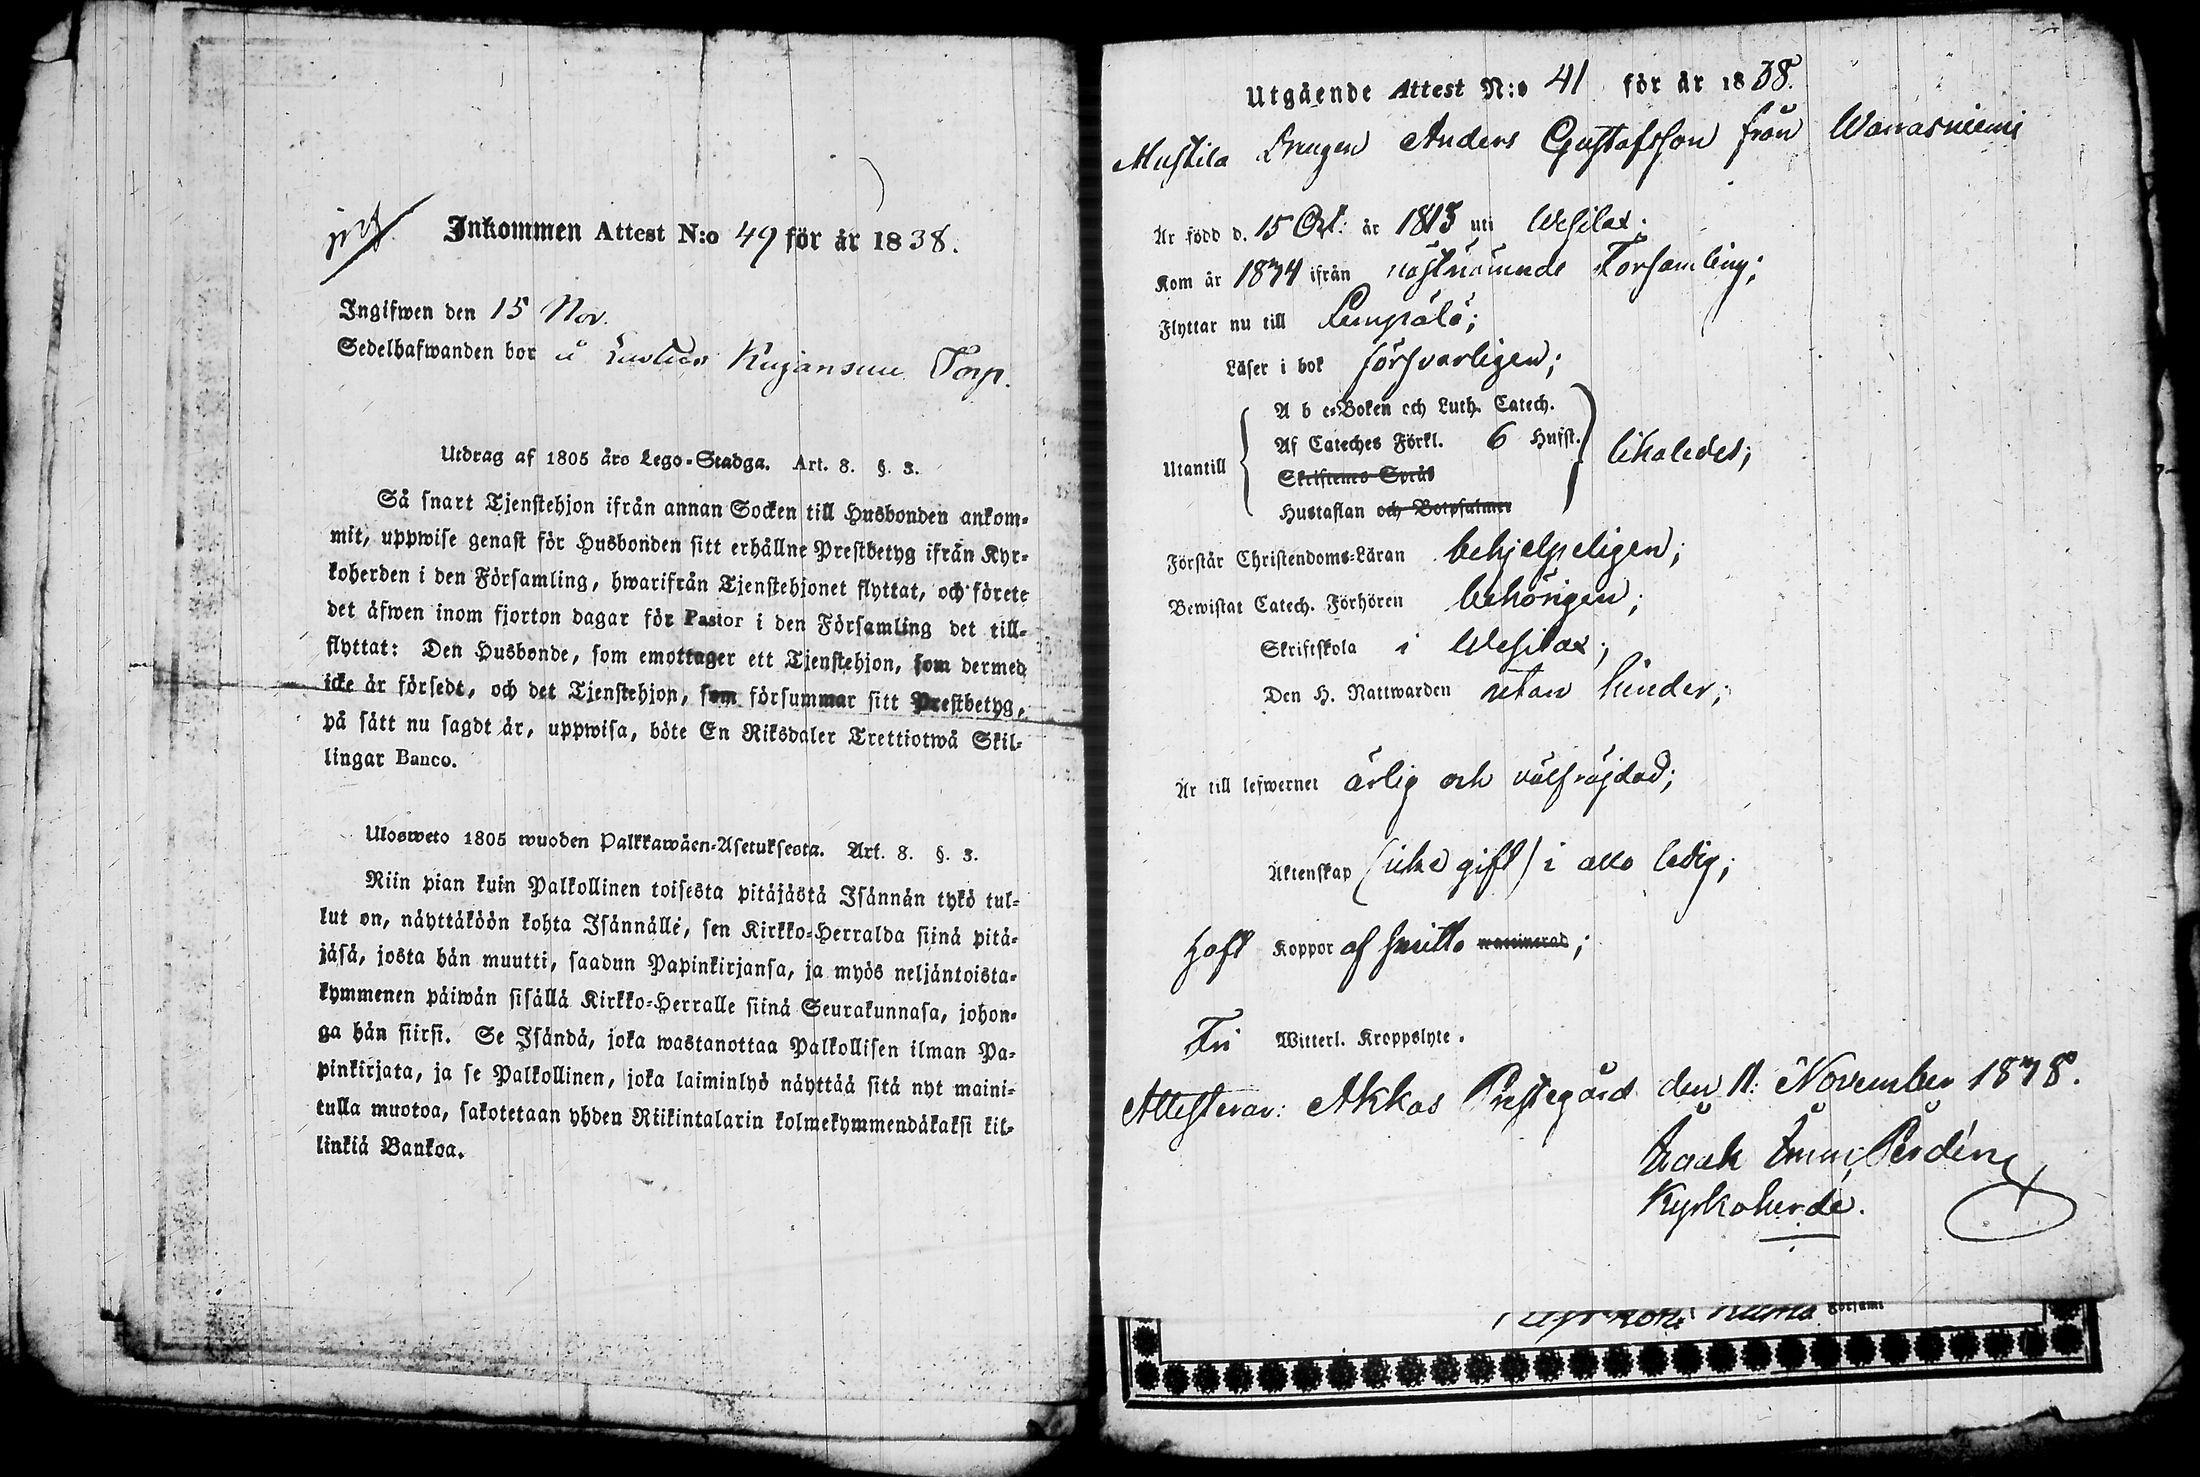 Inkommen Attest N:o 49 för år 1838.
Ingifwen den 15 Nov.
Sedelhafwanden bor å Kujansuu Torp.
Utdrag af 1805 års Lego-Stadga. Art. 8. §. 3.
Så snart Tjenstehjon ifrån annan Socken till Husbonden ankom-
mit, uppwise genast för Husbonden sitt erhållne Prestbetyg ifrån Kyr-
koherden i den Församling, hwarifrån Tjenstehjonet flyttat, och förete
det äfwen inom fjorton dagar för Pastor i den Församling det till-
flyttat: Den Husbonde, som emottager ett Tjenstehjon, som dermed
icke är försedt, och det Tjenstehjon, som försummar sitt Prestbetyg,
på sätt nu sagdt är, uppwisa, böte En Riksdaler Trettiotwå Skil-
lingar Banco.
Ulosweto 1805 wuoden Palkkawäen-Asetuksesta. Art. 8. §. 3.
Niin pian kuin Palkollinen toisesta pitäjästä Isännän tykö tul-
kut on, näyttäköön kohta Isännälle, sen Kirkko-Herralda siinä pitä-
jäsä, josta hän muutti, saadun Papinkirjansa, ja myös neljäntoista-
kymmenen päiwän sisällä Kirkko-Herralle siinä Seurakunnasa, johon-
ga hän siirsi. Se Isändä, joka wastanottaa Palkollisen ilman Pa-
pinkirjata, ja se Palkollinen, joka laiminlyö näyttää sitä nyt maini-
tulla muotoa, sakotetaan yhden Riikintalarin kolmekymmendäkaksi kil-
linkiä Bankoa.
Utgående Attest N:o 41 för år 1838.
Mustila Drengen Anders Gustafsson från Wanasniemi
Är född d. 15 Oct: år 1813 uti Wesilax;
Kom år 1834 ifrån nästnämnde Församling;
Flyttar nu till Lempälö;
Läser i bok försvarligen;
A b c-Boken och Luth. Catech.
Af Cateches Förkl. 6 Hufst.
Utantill likaledes;
Skriftenes Språk
Hustaflan och Botpsalmer
Förstår Christendoms-Läran behjelpeligen;
Bewistat Catech. Förhören behörigen;
Skriftskola i Wesilax;
Den H. Nattwarden utan hinder;
Är till lefwernet ärlig och välfräjdad;
Äktenskap (icke gift) i allo ledig;
Haft Koppor af smitto vaccinerad;
Fri Witterl. Kroppslyte.
Attesterar: Akkas Prestegård den 11: November 1838.
Kyrkoherde.
Församl